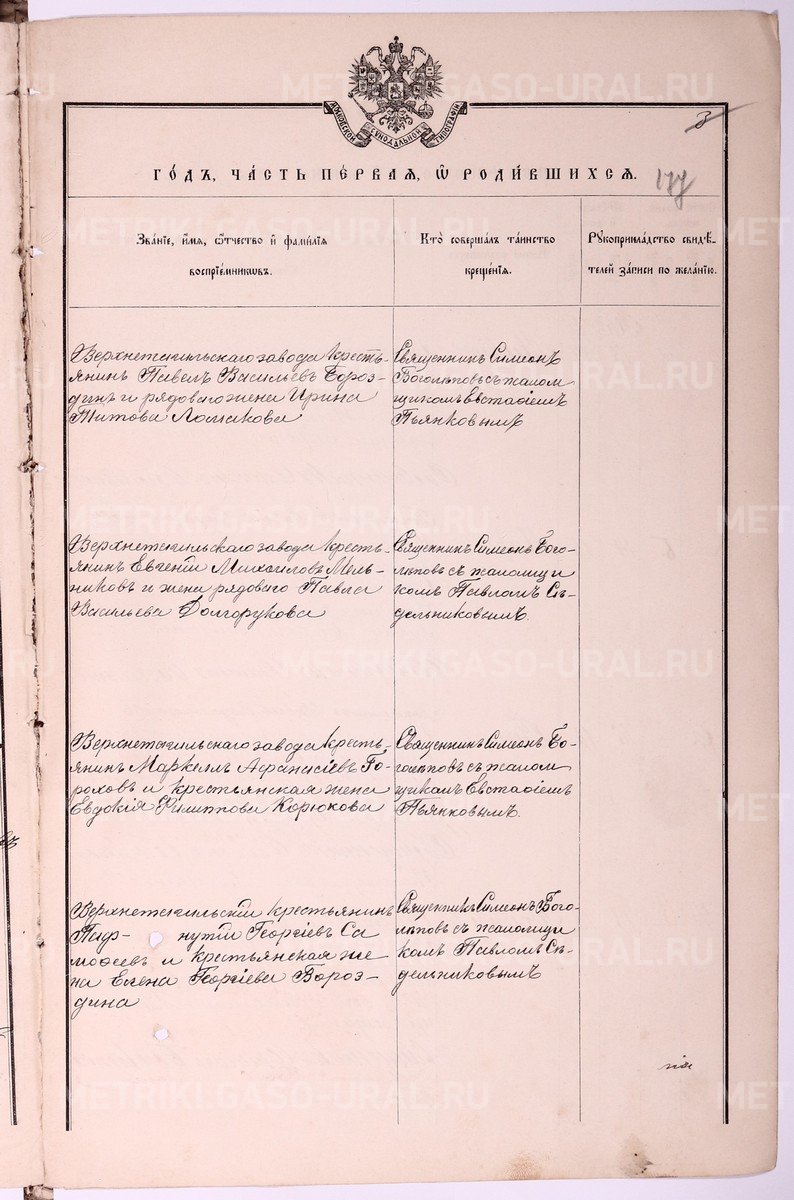 МОСКОВСКОЙ СѴНОДАЛЬНОЙ ТИПОГРАФІИ
3
ГО́ДЪ, ЧА́СТЬ ПЕ́РВАѦ, Ѡ҆ РОДИ́ВШИХСѦ.
177
Зва́нїе, и҆́мѧ, ѻ҆́тчество и҆ фами́лїѧ
воспрїе́мникѡвъ.
Кто̀ соверша́лъ та́инство
креще́нїѧ.
Рꙋкоприкла́дство свидѣ́-
телей за́писи по жела́нїю.
Верхнетагильскаго завода кресть-
янинъ Павелъ Васильевъ Бороз-
динъ и рядоваго жена Ирина
Титова Ломакова
Священникъ Симеонъ
Боголѣповъ съ псалом
щикомъ Евстафіемъ
Пьянковымъ
Верхнетагильскаго завода кресть-
янинъ Евгеній Михаиловъ Мель-
никовъ и жена рядоваго Павла
Васильева Долгорукова
Священникъ Симеонъ Бого-
лѣповъ съ псаломщи
комъ Павломъ Сѣ-
дельниковымъ.
Верхнетагильскаго завода кресть-
янинъ Маркеллъ Афанасіевъ Го-
роховъ и крестьянская жена
Евдокія Филиппова Корюкова
Священникъ Симеонъ Бо-
голѣповъ съ псалом
щикомъ Евстафіемъ
Пьянковымъ.
Верхнетагильскій крестьянинъ
Паф- нутій Георгіевъ Са
мофеевъ и крестьянская же
на Елена Георгіева Бороз-
дина
Священникъ Симеонъ Бого-
лѣповъ съ псаломщи
комъ Павломъ Сѣ-
дельниковымъ
METRIKI.GASO-URAL.RU